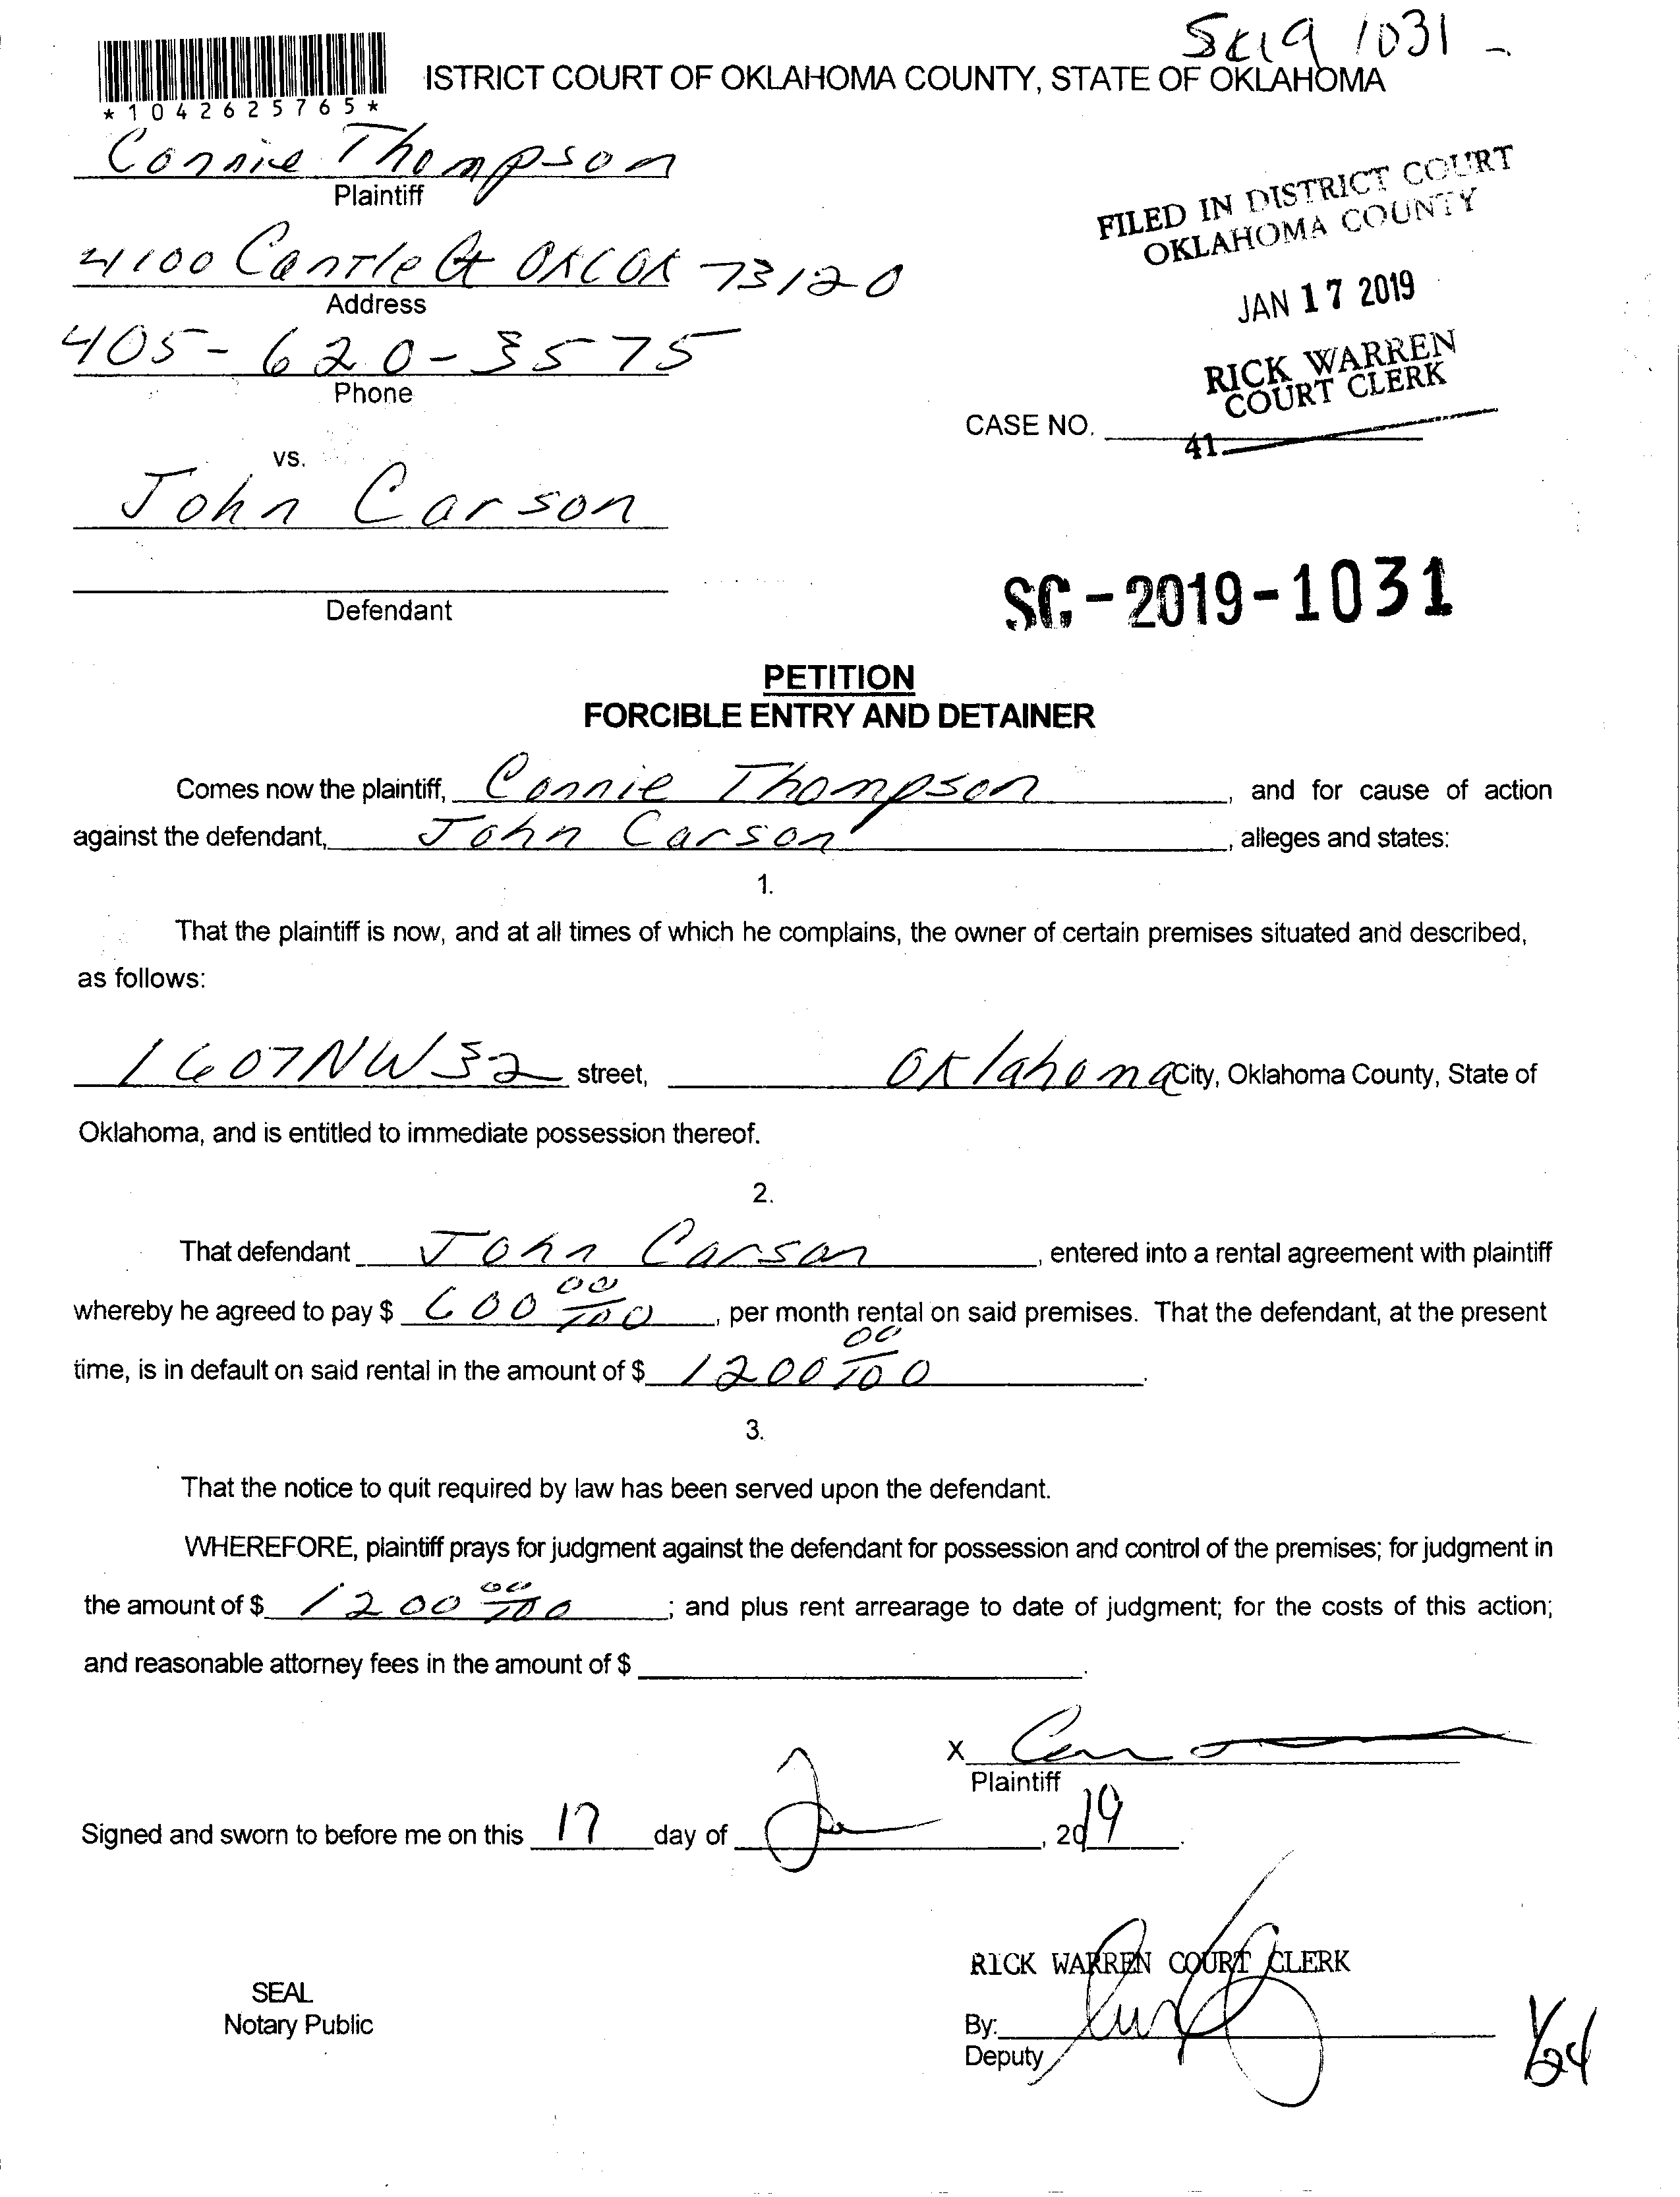 SC19 1031 -
ISTRICT COURT OF OKLAHOMA COUNTY, STATE OF OKLAHOMA
*1042625765*
Connie Thompson
Plaintiff
FILED IN DISTRICT COURT
OKLAHOMA COUNTY
4100 Ct OKC OK 73120
Address
JAN 17 2019
405-620-3575
Phone
RICK WARREN
COURT CLERK
CASE NO.
41
vs.
John Carson
Defendant
SC-2019-1031
PETITION
FORCIBLE ENTRY AND DETAINER
Comes now the plaintiff, Connie Thompson, and for cause of action
against the defendant, John Carson, alleges and states:
1.
That the plaintiff is now, and at all times of which he complains, the owner of certain premises situated and described,
as follows:
1607 NW 32 street, Oklahoma City, Oklahoma County, State of
Oklahoma, and is entitled to immediate possession thereof.
2.
That defendant John Carson, entered into a rental agreement with plaintiff
whereby he agreed to pay $ 600 00/100, per month rental on said premises. That the defendant, at the present
time, is in default on said rental in the amount of $ 1200 00/100.
3.
That the notice to quit required by law has been served upon the defendant.
WHEREFORE, plaintiff prays for judgment against the defendant for possession and control of the premises; for judgment in
the amount of $ 1200 00/100; and plus rent arrearage to date of judgment; for the costs of this action;
and reasonable attorney fees in the amount of $
X
Plaintiff
Signed and sworn to before me on this 17 day of Jan, 2019.
RICK WARREN COURT CLERK
SEAL
Notary Public
By:
Deputy
1/24